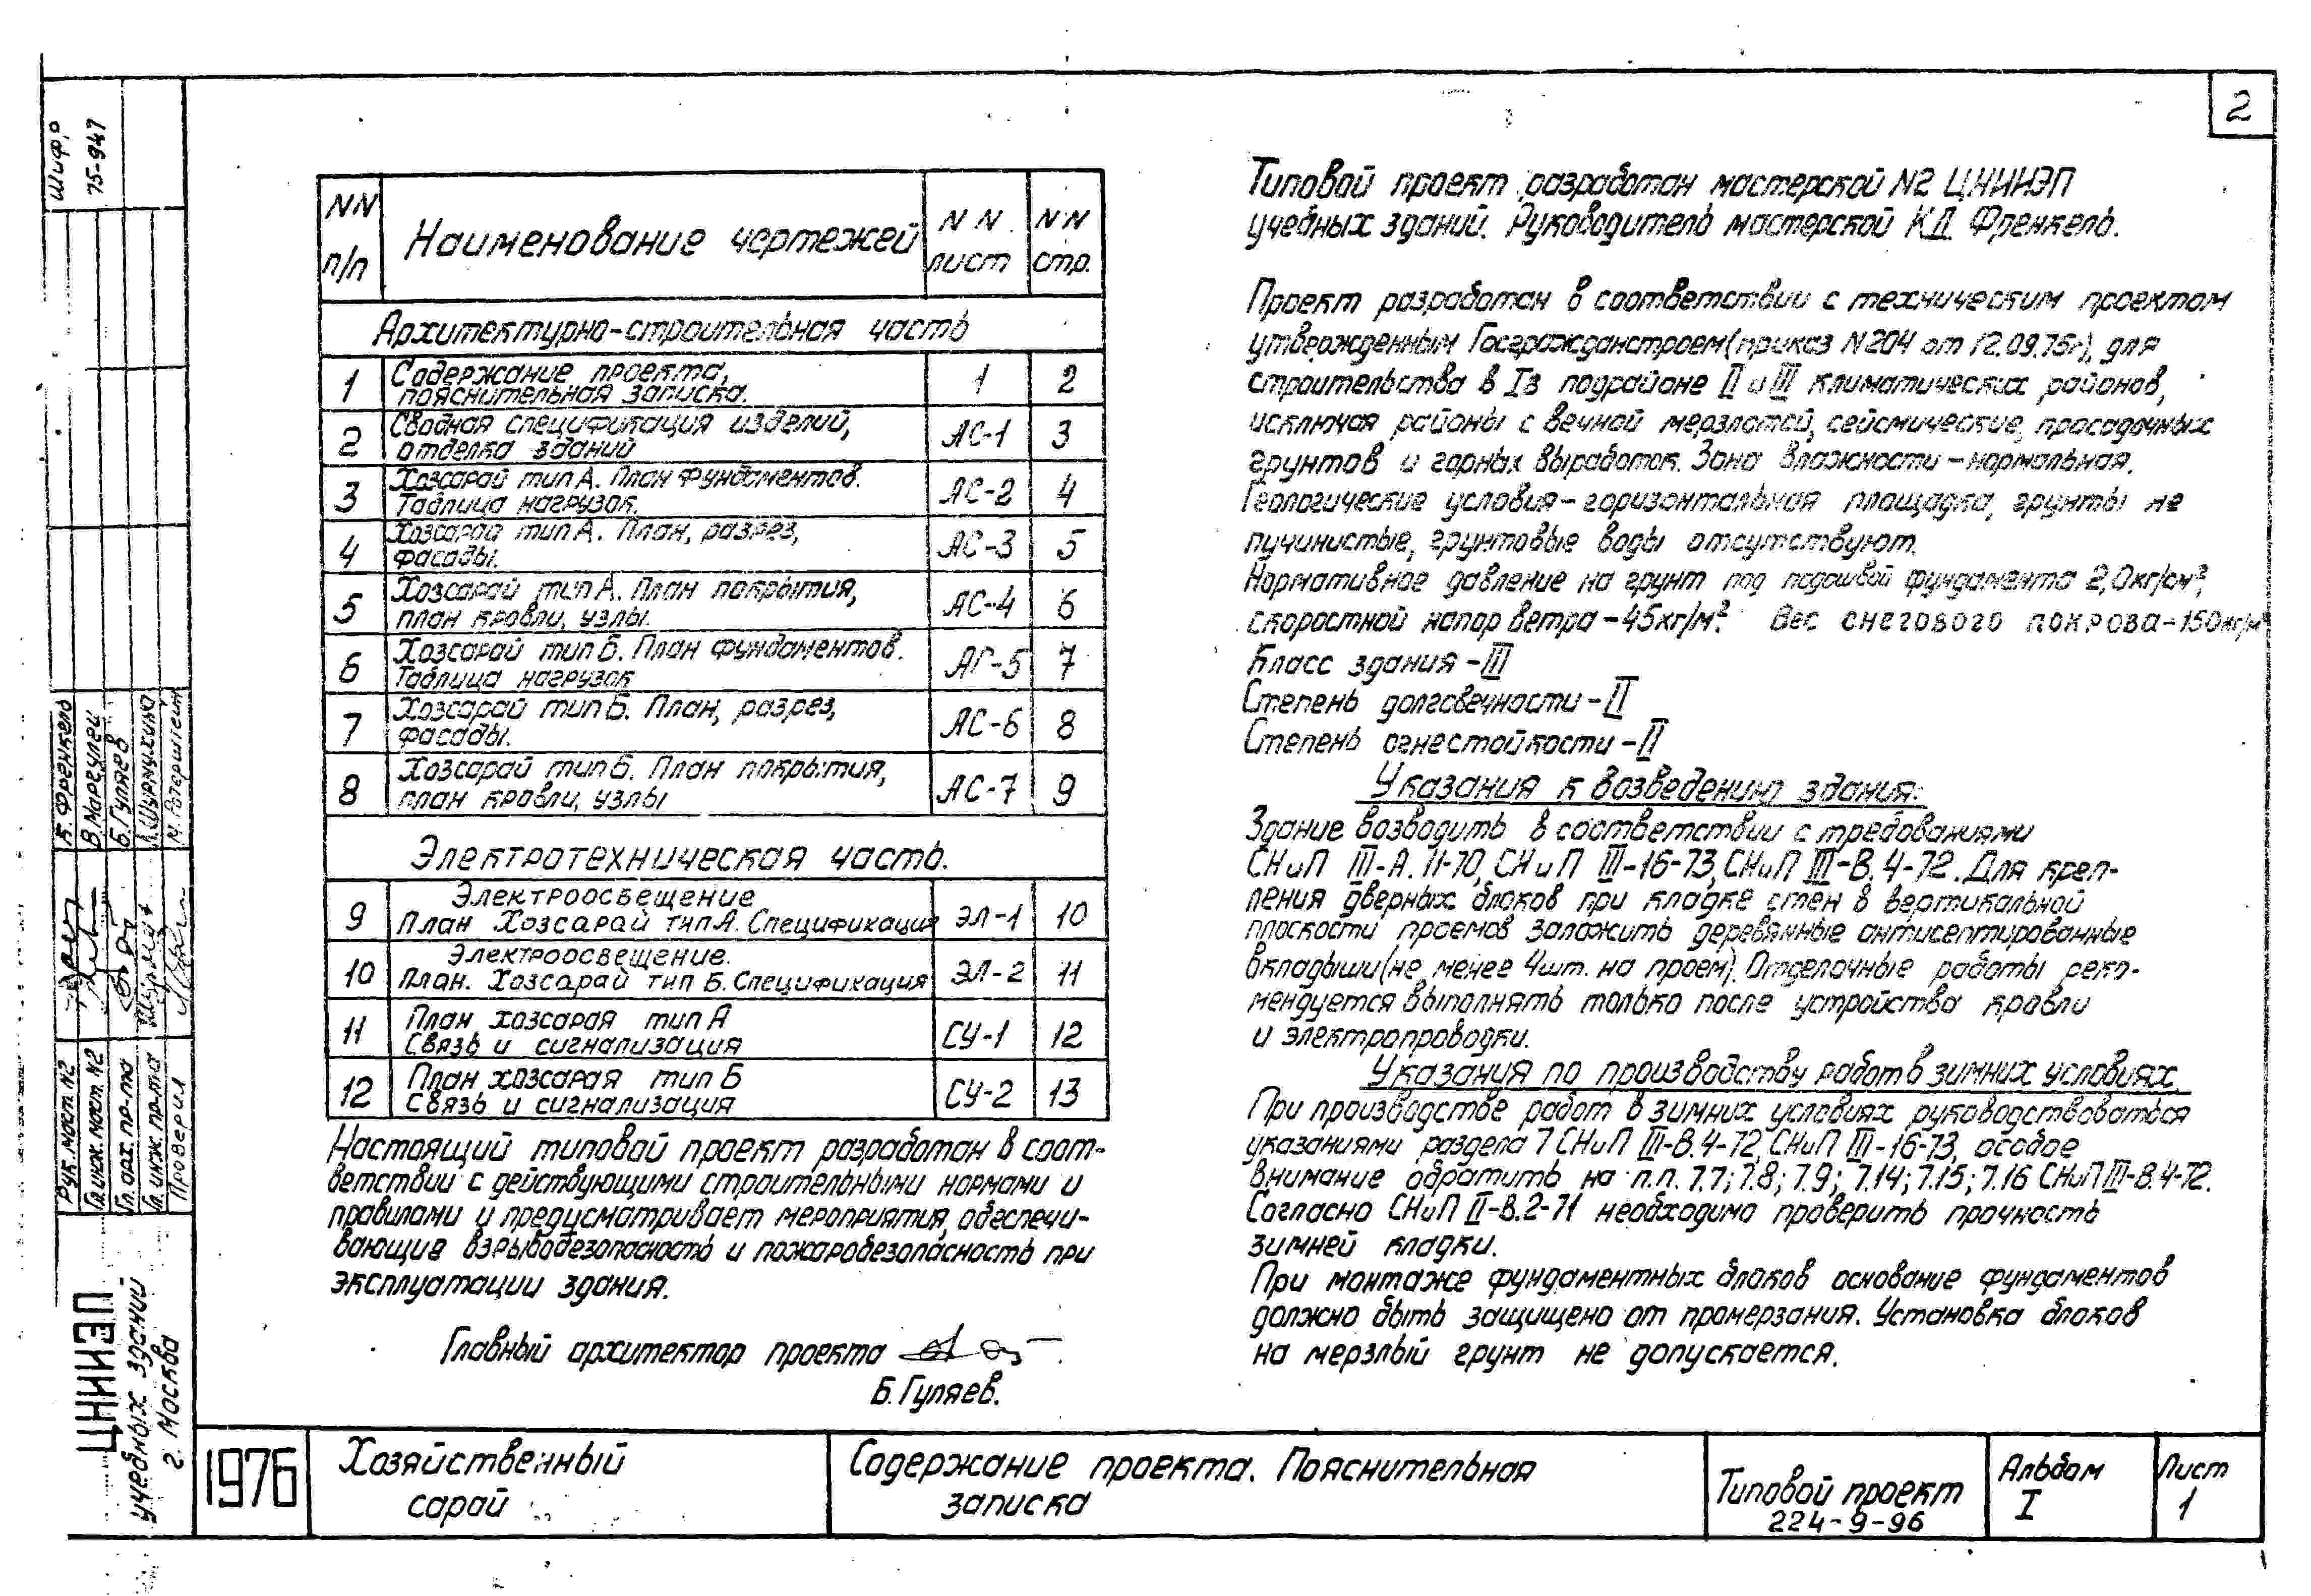 2
Шифр
75-947
NN п/п
Наименование чертежей
NN лист
NN стр.
Архитектурно-строительная часть
1 Содержание проекта, 1 2
пояснительная записка.
2 Сводная спецификация изделий, АС-1 3
отделка зданий
3 Хозсарай тип А. План фундаментов. АС-2 4
Таблица нагрузок.
4 Хозсарай тип А. План, разрез, АС-3 5
фасады.
5 Хозсарай тип А. План покрытия, АС-4 6
план кровли, узлы.
6 Хозсарай тип Б. План фундаментов. АГ-5 7
Таблица нагрузок
7 Хозсарай тип Б. План, разрез, АС-6 8
фасады.
8 Хозсарай тип Б. План покрытия, АС-7 9
план кровли, узлы
Электротехническая часть.
9 Электроосвещение ЭЛ-1 10
План Хозсарай тип А. Спецификация
10 Электроосвещение. ЭЛ-2 11
План. Хозсарай тип Б. Спецификация
11 План хозсарая тип А СУ-1 12
Связь и сигнализация
12 План хозсарая тип Б СУ-2 13
Связь и сигнализация
Настоящий типовой проект разработан в соот-
ветствии с действующими строительными нормами и
правилами и предусматривает мероприятия, обеспечи-
вающие взрывобезопасность и пожаробезопасность при
эксплуатации здания.
Главный архитектор проекта
Б. Гуляев.
Типовой проект разработан мастерской N2 ЦНИИЭП
учебных зданий. Руководитель мастерской К.Д. Френкель.
Проект разработан в соответствии с техническим проектом
утвержденным Госгражданстроем (приказ N204 от 12.09.75г), для
строительства в Iв подрайоне II и III климатических районов,
исключая районы с вечной мерзлотой, сейсмические, просадочных
грунтов и горных выработок. Зона влажности - нормальная.
Геологические условия - горизонтальная площадка, грунты не
пучинистые, грунтовые воды отсутствуют.
Нормативное давление на грунт под подошвой фундамента 2,0кг/см²,
скоростной напор ветра - 45кг/м². Вес снегового покрова - 150кг/м²
Класс здания - III
Степень долговечности - II
Степень огнестойкости - II
Указания к возведению здания:
Здание возводить в соответствии с требованиями
СНиП III-А. 11-70, СНиП III-16-73, СНиП III-В. 4-72. Для креп-
ления дверных блоков при кладке стен в вертикальной
плоскости проемов заложить деревянные антисептированные
вкладыши (не менее 4шт. на проем). Отделочные работы реко-
мендуется выполнять только после устройства кровли
и электропроводки.
Указания по производству работ в зимних условиях
При производстве работ в зимних условиях руководствоваться
указаниями раздела 7 СНиП III-В.4-72, СНиП III-16-73, особое
внимание обратить на п.п. 7.7; 7.8; 7.9; 7.14; 7.15; 7.16 СНиП III-В.4-72.
Согласно СНиП II-В.2-71 необходимо проверить прочность
зимней кладки.
При монтаже фундаментных блоков основание фундаментов
должно быть защищено от промерзания. Установка блоков
на мерзлый грунт не допускается.
Рук. маст. N2 К. Френкель
Гл. инж. маст. N2 В. Маргулец
Гл. арх. пр-та Б. Гуляев
Гл. инж. пр-та Л. Шурмухина
Проверил
ЦНИИЭП
учебных зданий
г. Москва
1976
Хозяйственный
сарай
Содержание проекта. Пояснительная
записка
Типовой проект
224-9-96
Альбом
I
Лист
1